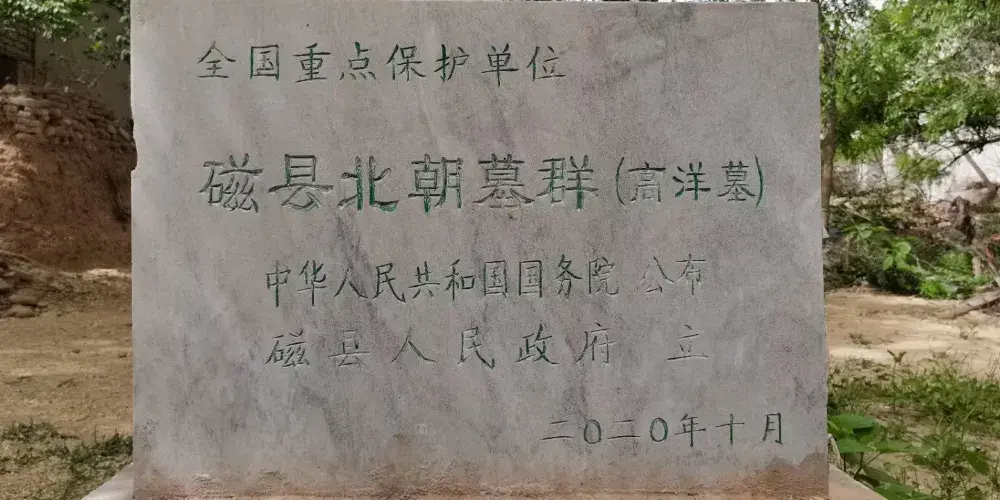 全国重点保护单位
磁县北朝墓群(高洋墓)
中华人民共和国国务院 公布
磁县人民政府 立
二〇二〇年十月